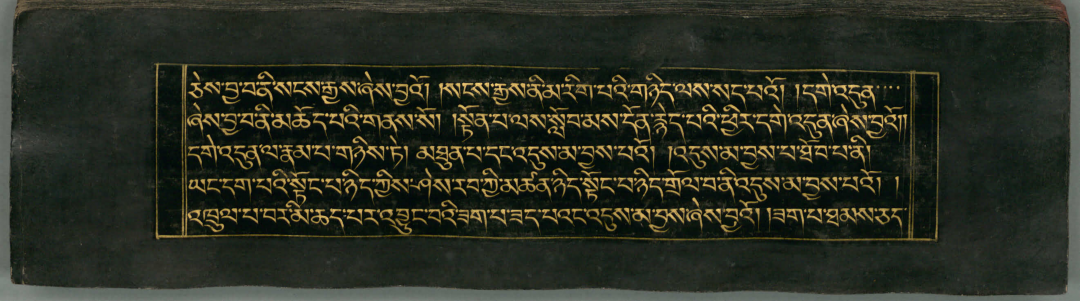 ཅེས་བྱ་བ་ནི་སངས་རྒྱས་ཞེས་བྱའོ། །སངས་རྒྱས་ནི་མ་རིག་པའི་གཉིད་ལས་སང་པའོ། །དགེ་འདུན་
ཞེས་བྱ་བ་ནི་མཆོད་པའི་གནས་སོ། །སྟོན་པ་ལས་སློབ་མས་དོན་རྙེད་པའི་ཕྱིར་དགེ་འདུན་ཞས་བྱའོ།།
དགེ་འདུན་ལ་རྣམ་པ་གཉིས་ཏེ། མཐུན་པ་དང་འདུས་མ་བྱས་པའོ། །འདུས་མ་བྱས་པ་ཐོབ་པ་ནི།
ཡང་དག་པའི་སྟོང་པ་ཉིད་ཀྱིས་ཤེས་རབ་ཀྱི་མཚན་ཉིད་སྟོང་པ་ཉིད་གྲོལ་བ་ནི་འདུས་མ་བྱས་པའོ། །
འཁྲུལ་པ་བར་མི་ཆད་པར་འབྱུང་བའི་ཟག་པ་ཟད་པའང་འདུས་མ་བྱས་ཞེས་བྱའོ། །ཟག་པ་ཐམས་ཅད་